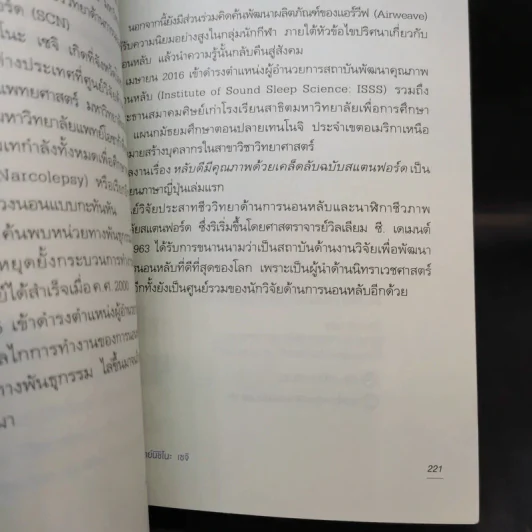 ร์ด (SCN)
โนะ เซจิ เกิดที่จังหวัด
ต่างประเทศที่ศูนย์วิจัย
แพทยศาสตร์ มหาวิทยาลัย
มหาวิทยาลัยแพทย์โอซาก้า
แทกำลังทั้งหมดเพื่อศึกษา
Narcolepsy) หรือเรียก
่วงนอนแบบกะทันหัน
ค้นพบหน่วยทางพันธุกรรม
หยุดยั้งกระบวนการทำ
์ได้สำเร็จเมื่อ ค.ศ. 2000
เข้าดำรงตำแหน่งผู้อำนวย
ลไกการทำงานของการนอน
ทางพันธุกรรม ไล่ขึ้นมาจน
นา
นอกจากนี้ยังมีส่วนร่วมคิดค้นพัฒนาผลิตภัณฑ์ของแอร์วีฟ (Airweave)
รับความนิยมอย่างสูงในกลุ่มนักกีฬา ภายใต้หัวข้อไขปริศนาเกี่ยวกับ
อนหลับ แล้วนำความรู้นั้นกลับคืนสู่สังคม
เมษายน 2016 เข้าดำรงตำแหน่งผู้อำนวยการสถาบันพัฒนาคุณภาพ
นหลับ (Institute of Sound Sleep Science: ISSS) รวมถึง
ะธานสมาคมศิษย์เก่าโรงเรียนสาธิตมหาวิทยาลัยเพื่อการศึกษา
แผนกมัธยมศึกษาตอนปลายเทนโนจิ ประจำเขตอเมริกาเหนือ
มายสร้างบุคลากรในสาขาวิชาวิทยาศาสตร์
ลงานเรื่อง หลับดีมีคุณภาพด้วยเคล็ดลับฉบับสแตนฟอร์ด เป็น
ียนภาษาญี่ปุ่นเล่มแรก
ย์วิจัยประสาทชีววิทยาด้านการนอนหลับและนาฬิกาชีวภาพ
ัยสแตนฟอร์ด ซึ่งริเริ่มขึ้นโดยศาสตราจารย์วิลเลียม ซี. เดเมนต์
963 ได้รับการขนานนามว่าเป็นสถาบันด้านงานวิจัยเพื่อพัฒนา
นอนหลับที่ดีที่สุดของโลก เพราะเป็นผู้นำด้านนิทราเวชศาสตร์
อีกทั้งยังเป็นศูนย์รวมของนักวิจัยด้านการนอนหลับอีกด้วย
ย์นิชิโนะ เซจิ
221